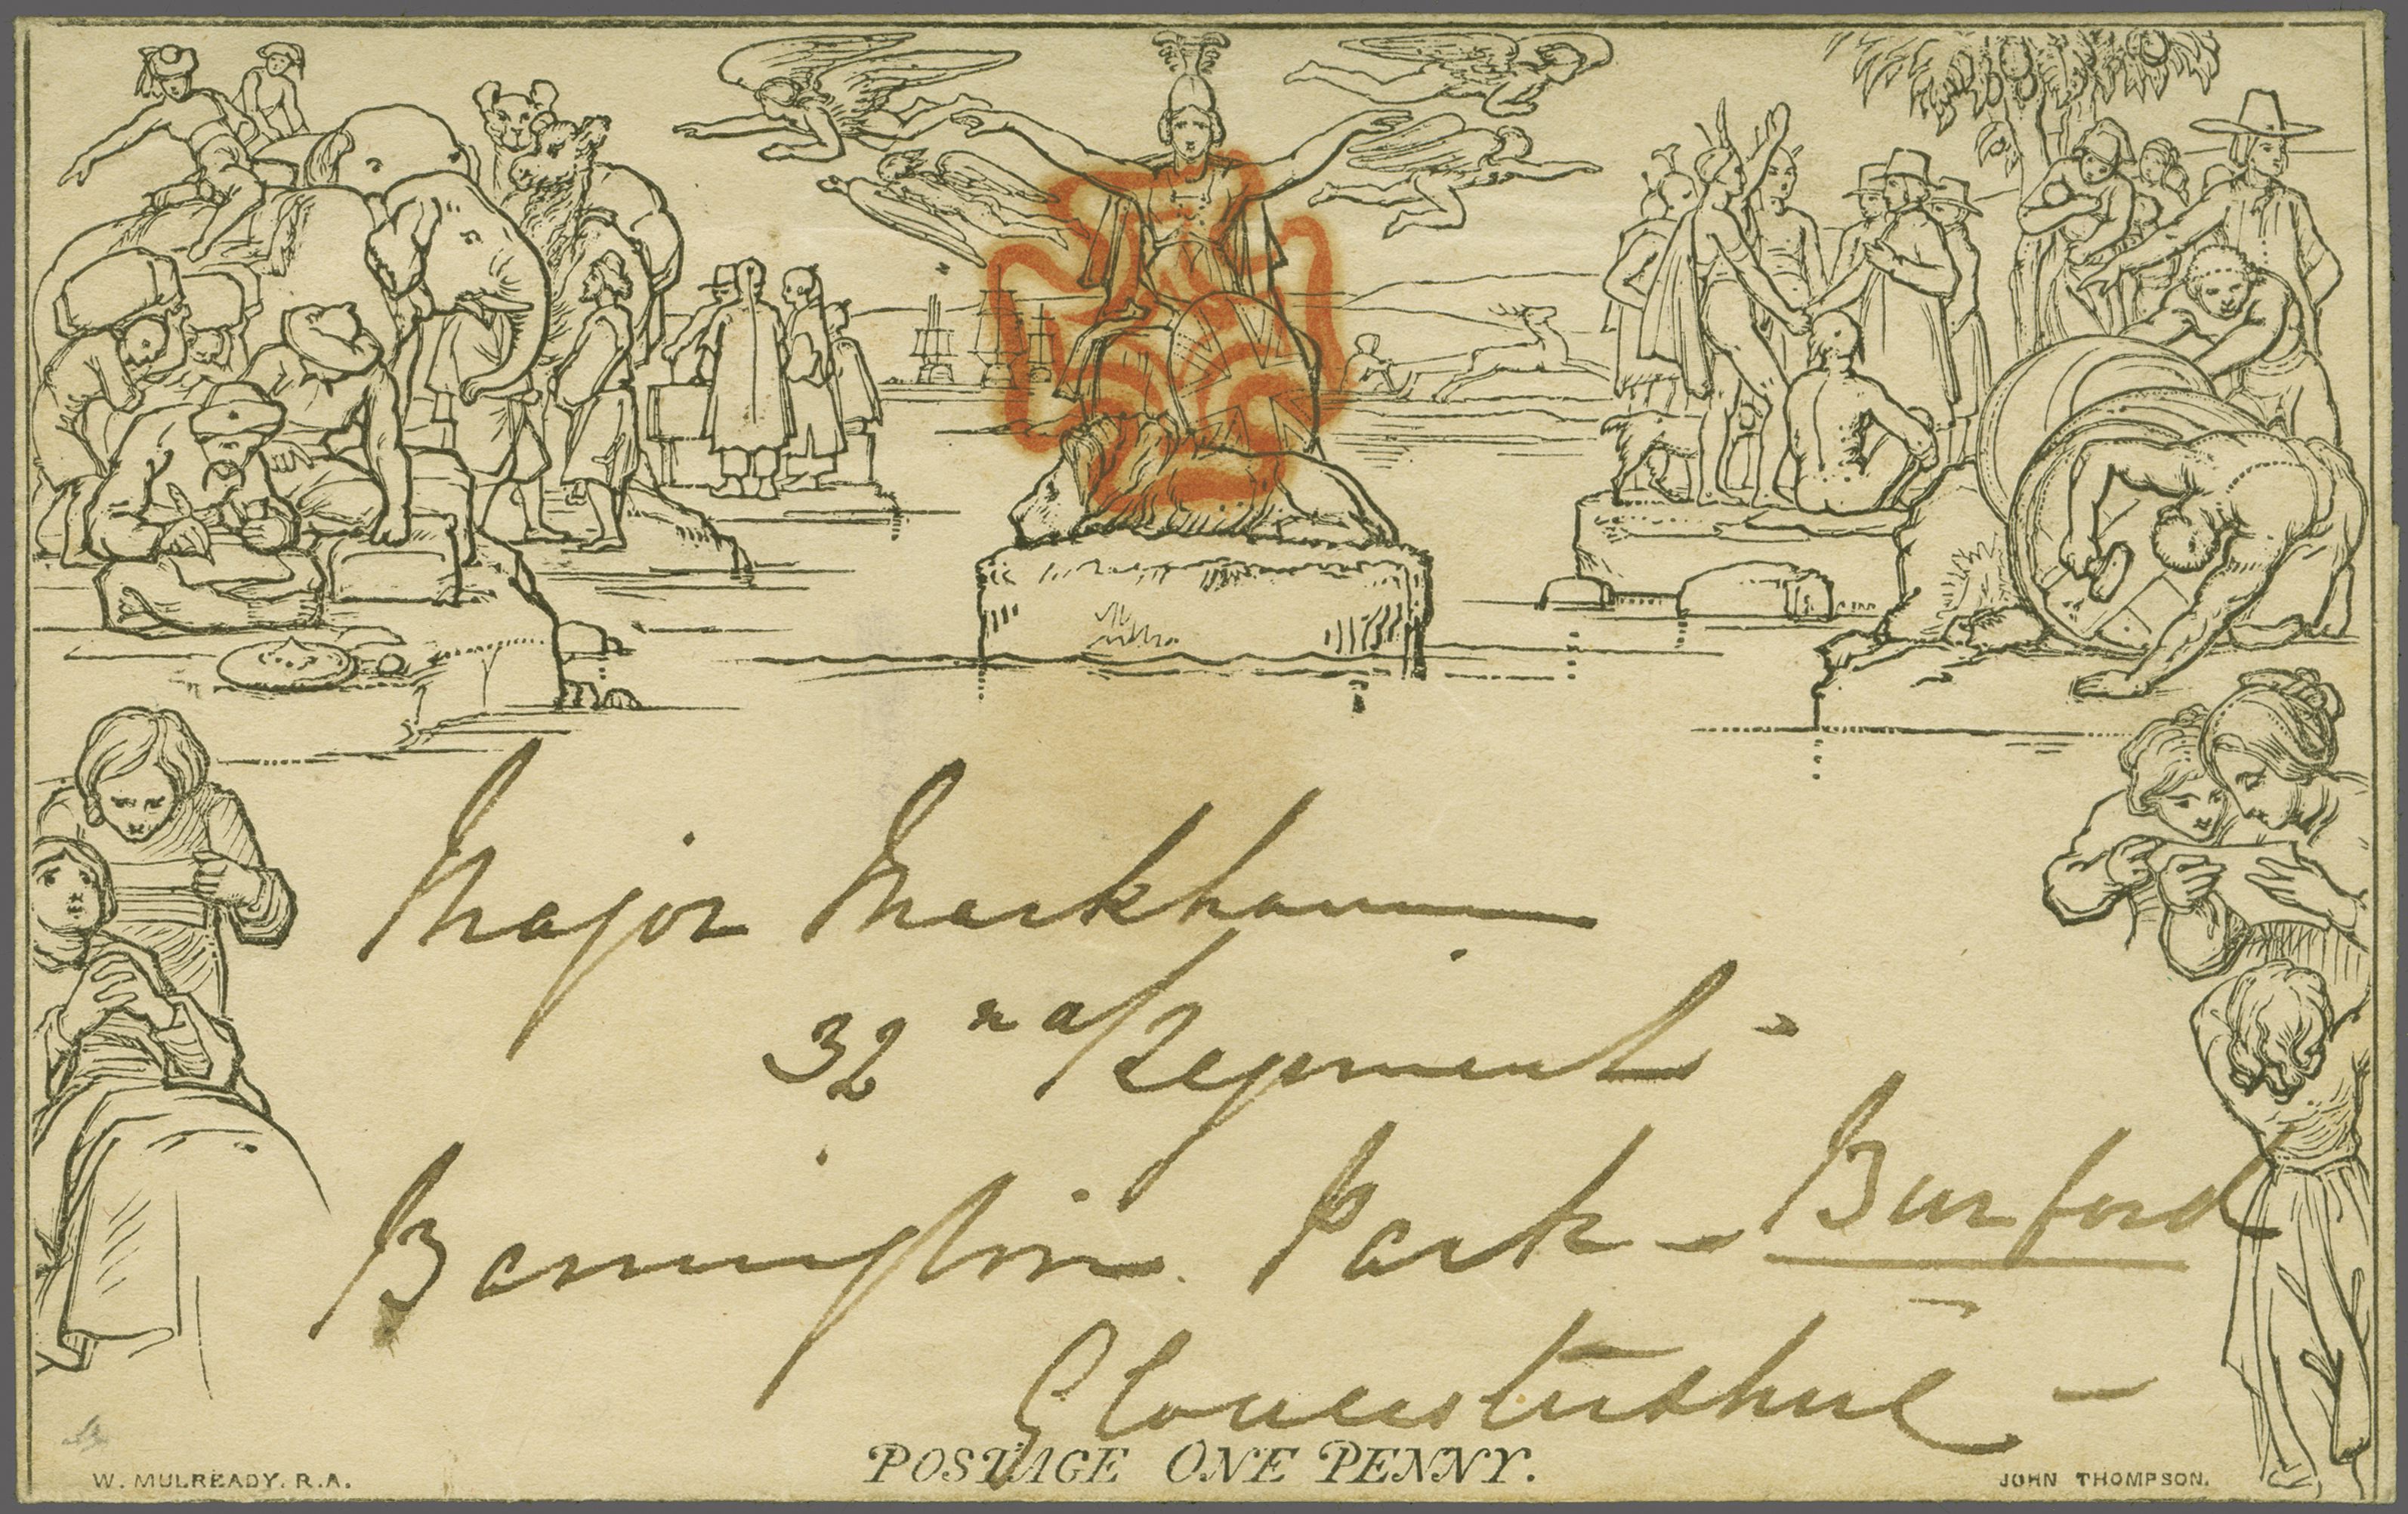 Major Markham
32nd Regiment -
Barrington Park - Burford
Gloucestershire -
POSTAGE ONE PENNY.
W. MULREADY. R.A.
JOHN THOMPSON.